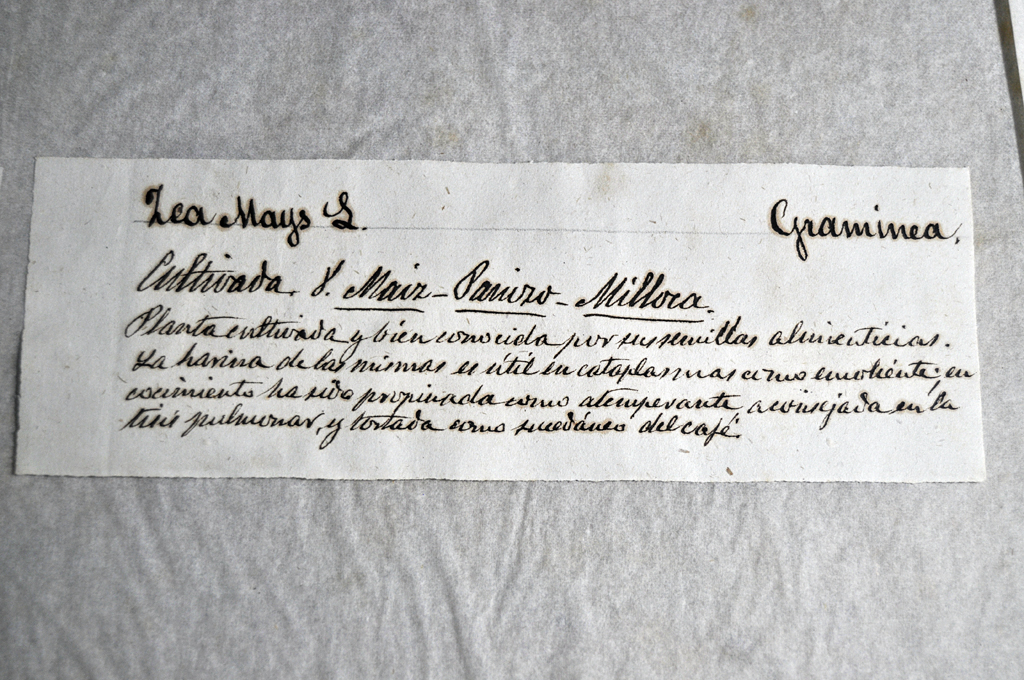 Zea Mays L. Graminea.
Cultivada. V. Maiz - Panizo - Milloca.
Planta cultivada y bien conocida por sus semillas alimenticias.
La harina de las mismas es útil en cataplasmas como emoliente; en
cocimiento ha sido propinada como atemperante, aconsejada en la
tisis pulmonar, y tostada como sucedáneo del café.